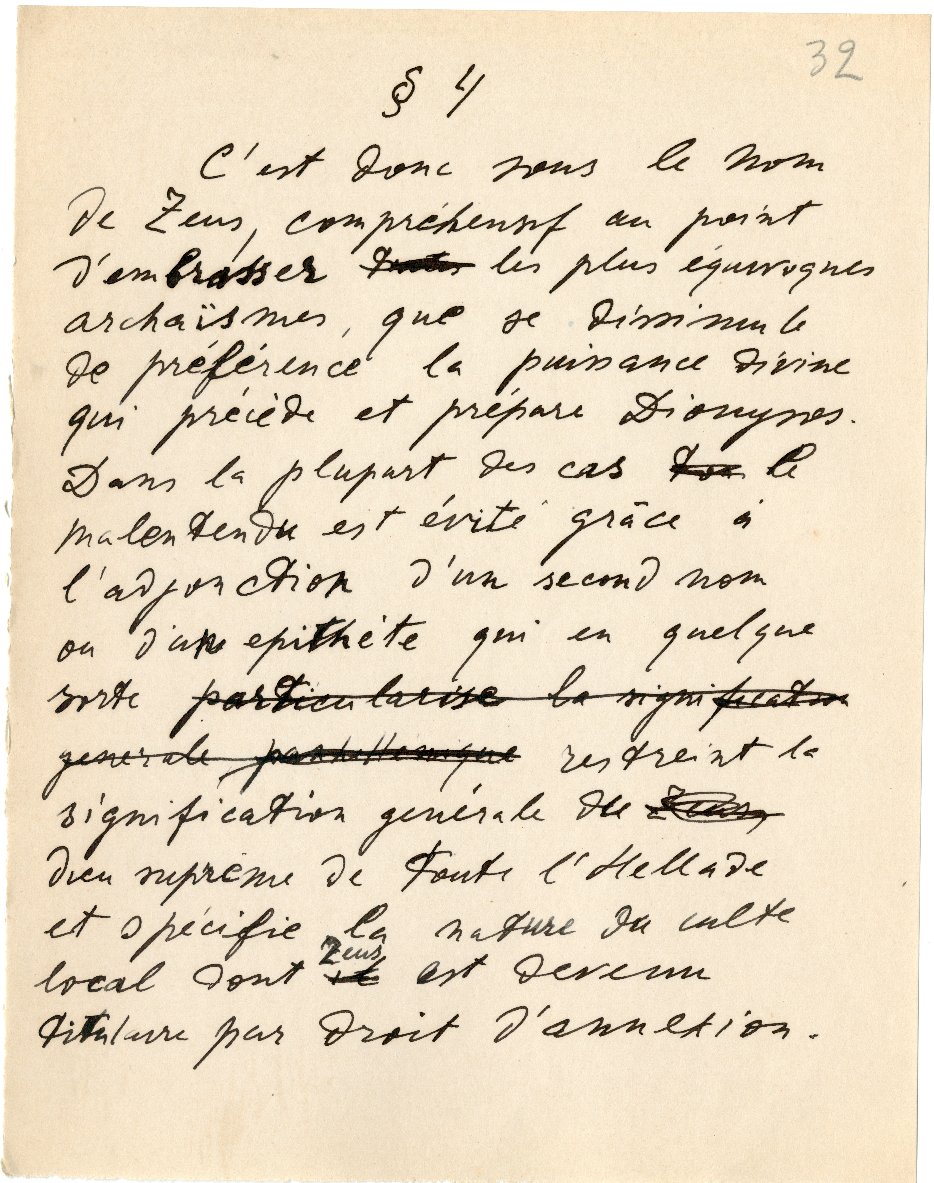 32
§ 4
C'est donc sous le nom
de Zeus, compréhensif au point
d'embrasser toutes les plus équivoques
archaïsmes, que se dissimule
de préférence la puissance divine
qui précède et prépare Dionysos.
Dans la plupart des cas le
malentendu est évité grâce à
l'adjonction d'un second nom
ou d'une epithéte qui en quelque
sorte particularise la signification
generale panhellenique restreint la
signification générale du Zeus,
dieu suprême de toute l'Hellade
et spécifie la nature du culte
Zeus
local dont il est devenu
titulaire par droit d'annexion.